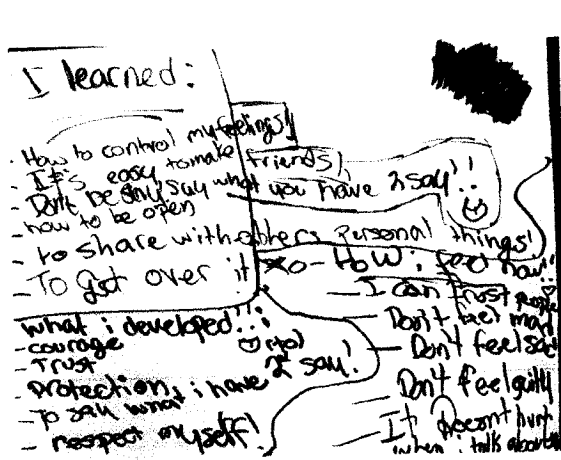 I learned:
- How to control my feelings!
- It's easy to make friends!
- Don't be shy, say what you have 2 say!!
- how to be open
- to share with others personal things!
- To Get over it
What i developed!!:
- courage
- Trust
- Protection, i have
- To say what 2 say!
- respect myself!
How i feel now!!
- I can trust people
- Don't feel mad
- Don't feel sad
- Don't feel guilty
- It doesn't hurt
when i talk about